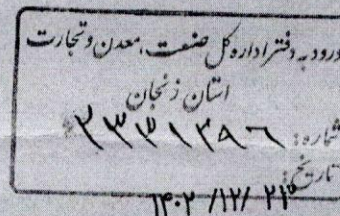 ورود به دفتر اداره کل صنعت، معدن و تجارت
استان زنجان
شماره: ۳۳۳۱۳۹۶
تاریخ:
۱۴۰۲/۱۲/۲۱